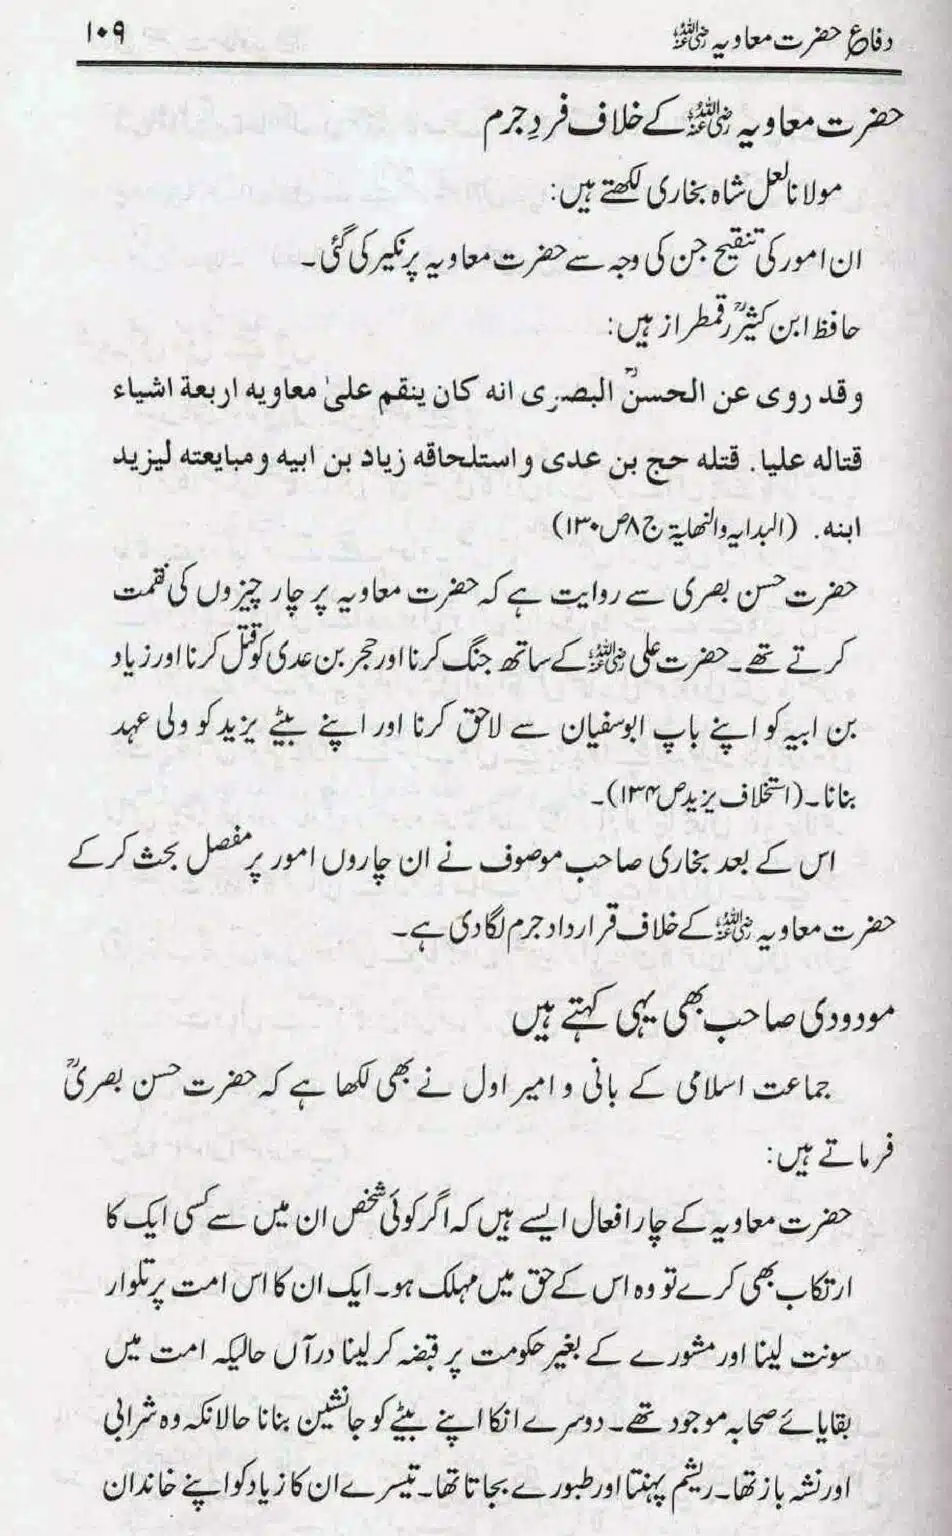 دفاعِ حضرت معاویہ رضی اللہ عنہ ۱۰۹
حضرت معاویہ رضی اللہ عنہ کے خلاف فردِ جرم
مولانا لعل شاہ بخاری لکھتے ہیں:
ان امور کی تنقیح جن کی وجہ سے حضرت معاویہ پر نکیر کی گئی۔
حافظ ابن کثیرؒ رقمطراز ہیں:
وقد روی عن الحسنؒ البصری انه کان ینقم علیٰ معاویه اربعة اشیاء
قتاله علیا. قتله حج بن عدی و استلحاقه زیاد بن ابیه و مبایعته لیزید
ابنه. (البدایہ والنھایۃ ج ۸ ص ۱۳۰)
حضرت حسن بصری سے روایت ہے کہ حضرت معاویہ پر چار چیزوں کی نقمت
کرتے تھے۔ حضرت علی رضی اللہ عنہ کے ساتھ جنگ کرنا اور حجر بن عدی کو قتل کرنا اور زیاد
بن ابیہ کو اپنے باپ ابوسفیان سے لاحق کرنا اور اپنے بیٹے یزید کو ولی عہد
بنانا۔ (استخلاف یزید ص ۱۳۴)۔
اس کے بعد بخاری صاحب موصوف نے ان چاروں امور پر مفصل بحث کر کے
حضرت معاویہ رضی اللہ عنہ کے خلاف قرارداد جرم لگادی ہے۔
مودودی صاحب بھی یہی کہتے ہیں
جماعت اسلامی کے بانی و امیر اول نے بھی لکھا ہے کہ حضرت حسن بصریؒ
فرماتے ہیں:
حضرت معاویہ کے چار افعال ایسے ہیں کہ اگر کوئی شخص ان میں سے کسی ایک کا
ارتکاب بھی کرے تو وہ اس کے حق میں مہلک ہو۔ ایک ان کا اس امت پر تلوار
سونت لینا اور مشورے کے بغیر حکومت پر قبضہ کر لینا درآں حالیکہ امت میں
بقایائے صحابہ موجود تھے۔ دوسرے انکا اپنے بیٹے کو جانشین بنانا حالانکہ وہ شرابی
اور نشہ باز تھا۔ ریشم پہنتا اور طبورے بجاتا تھا۔ تیسرے ان کا زیاد کو اپنے خاندان